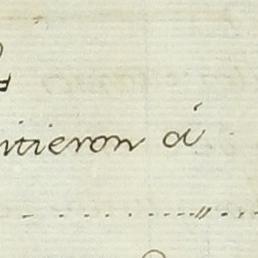 itieron á